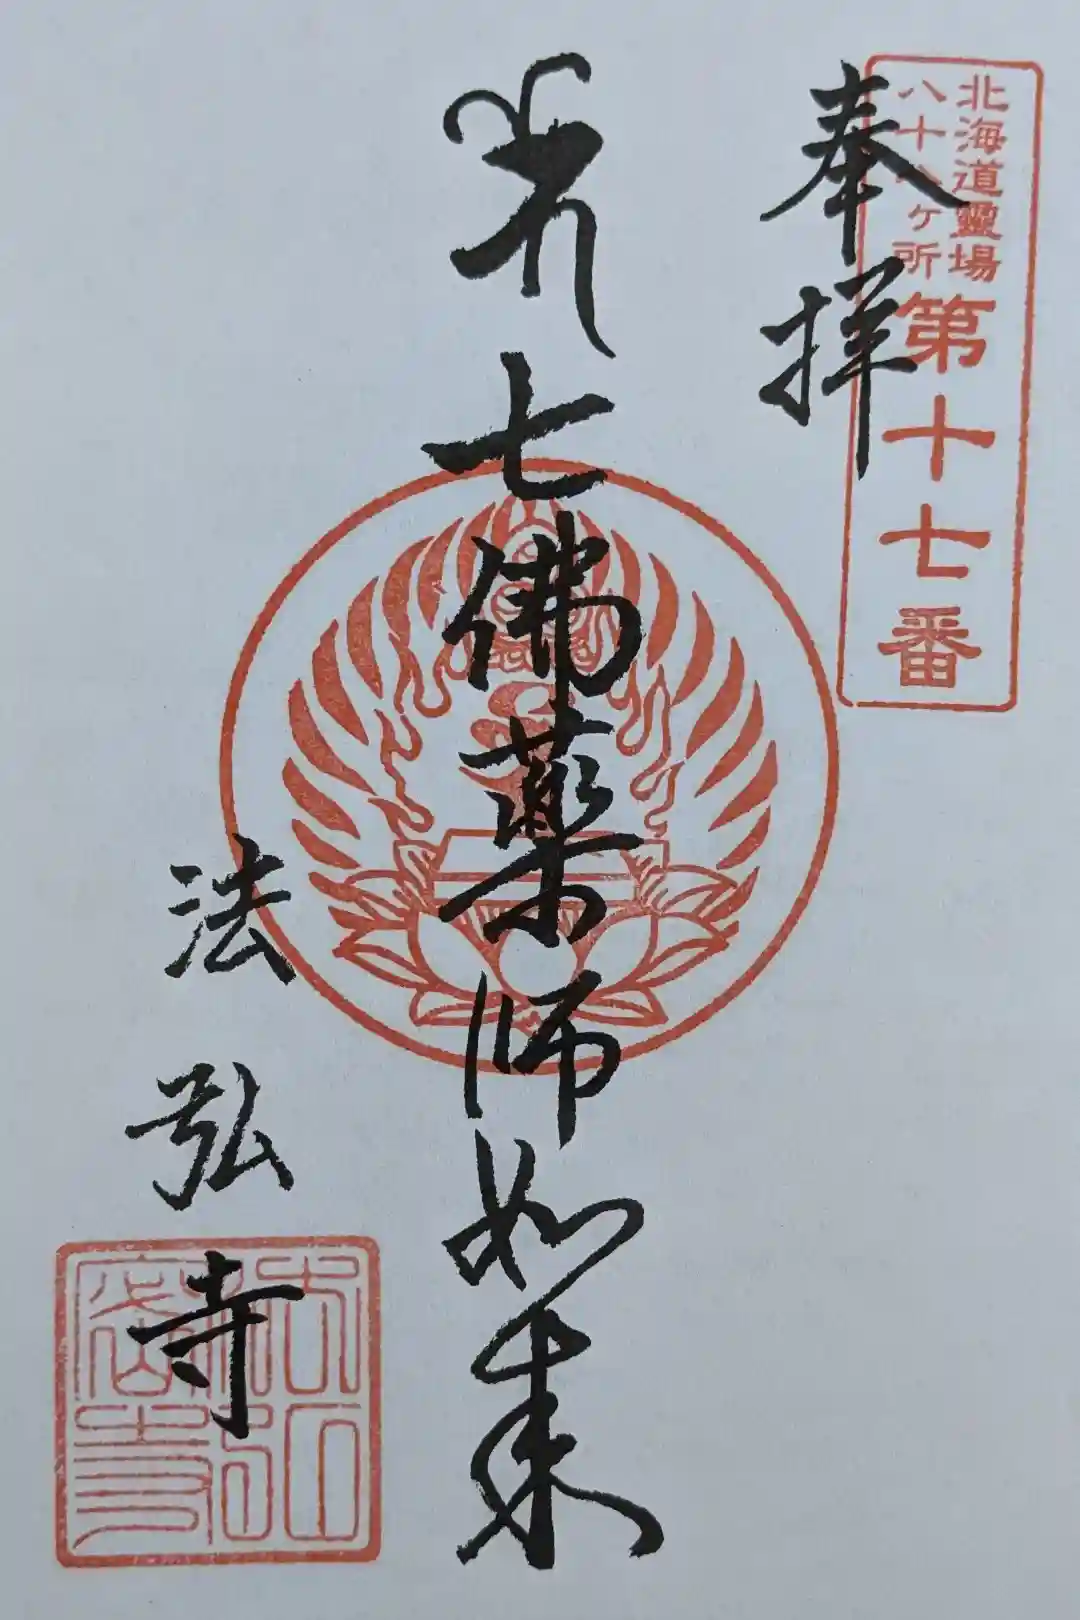 北海道靈場
八十八ヶ所
第十七番
奉拝
七佛薬師如来
法弘寺